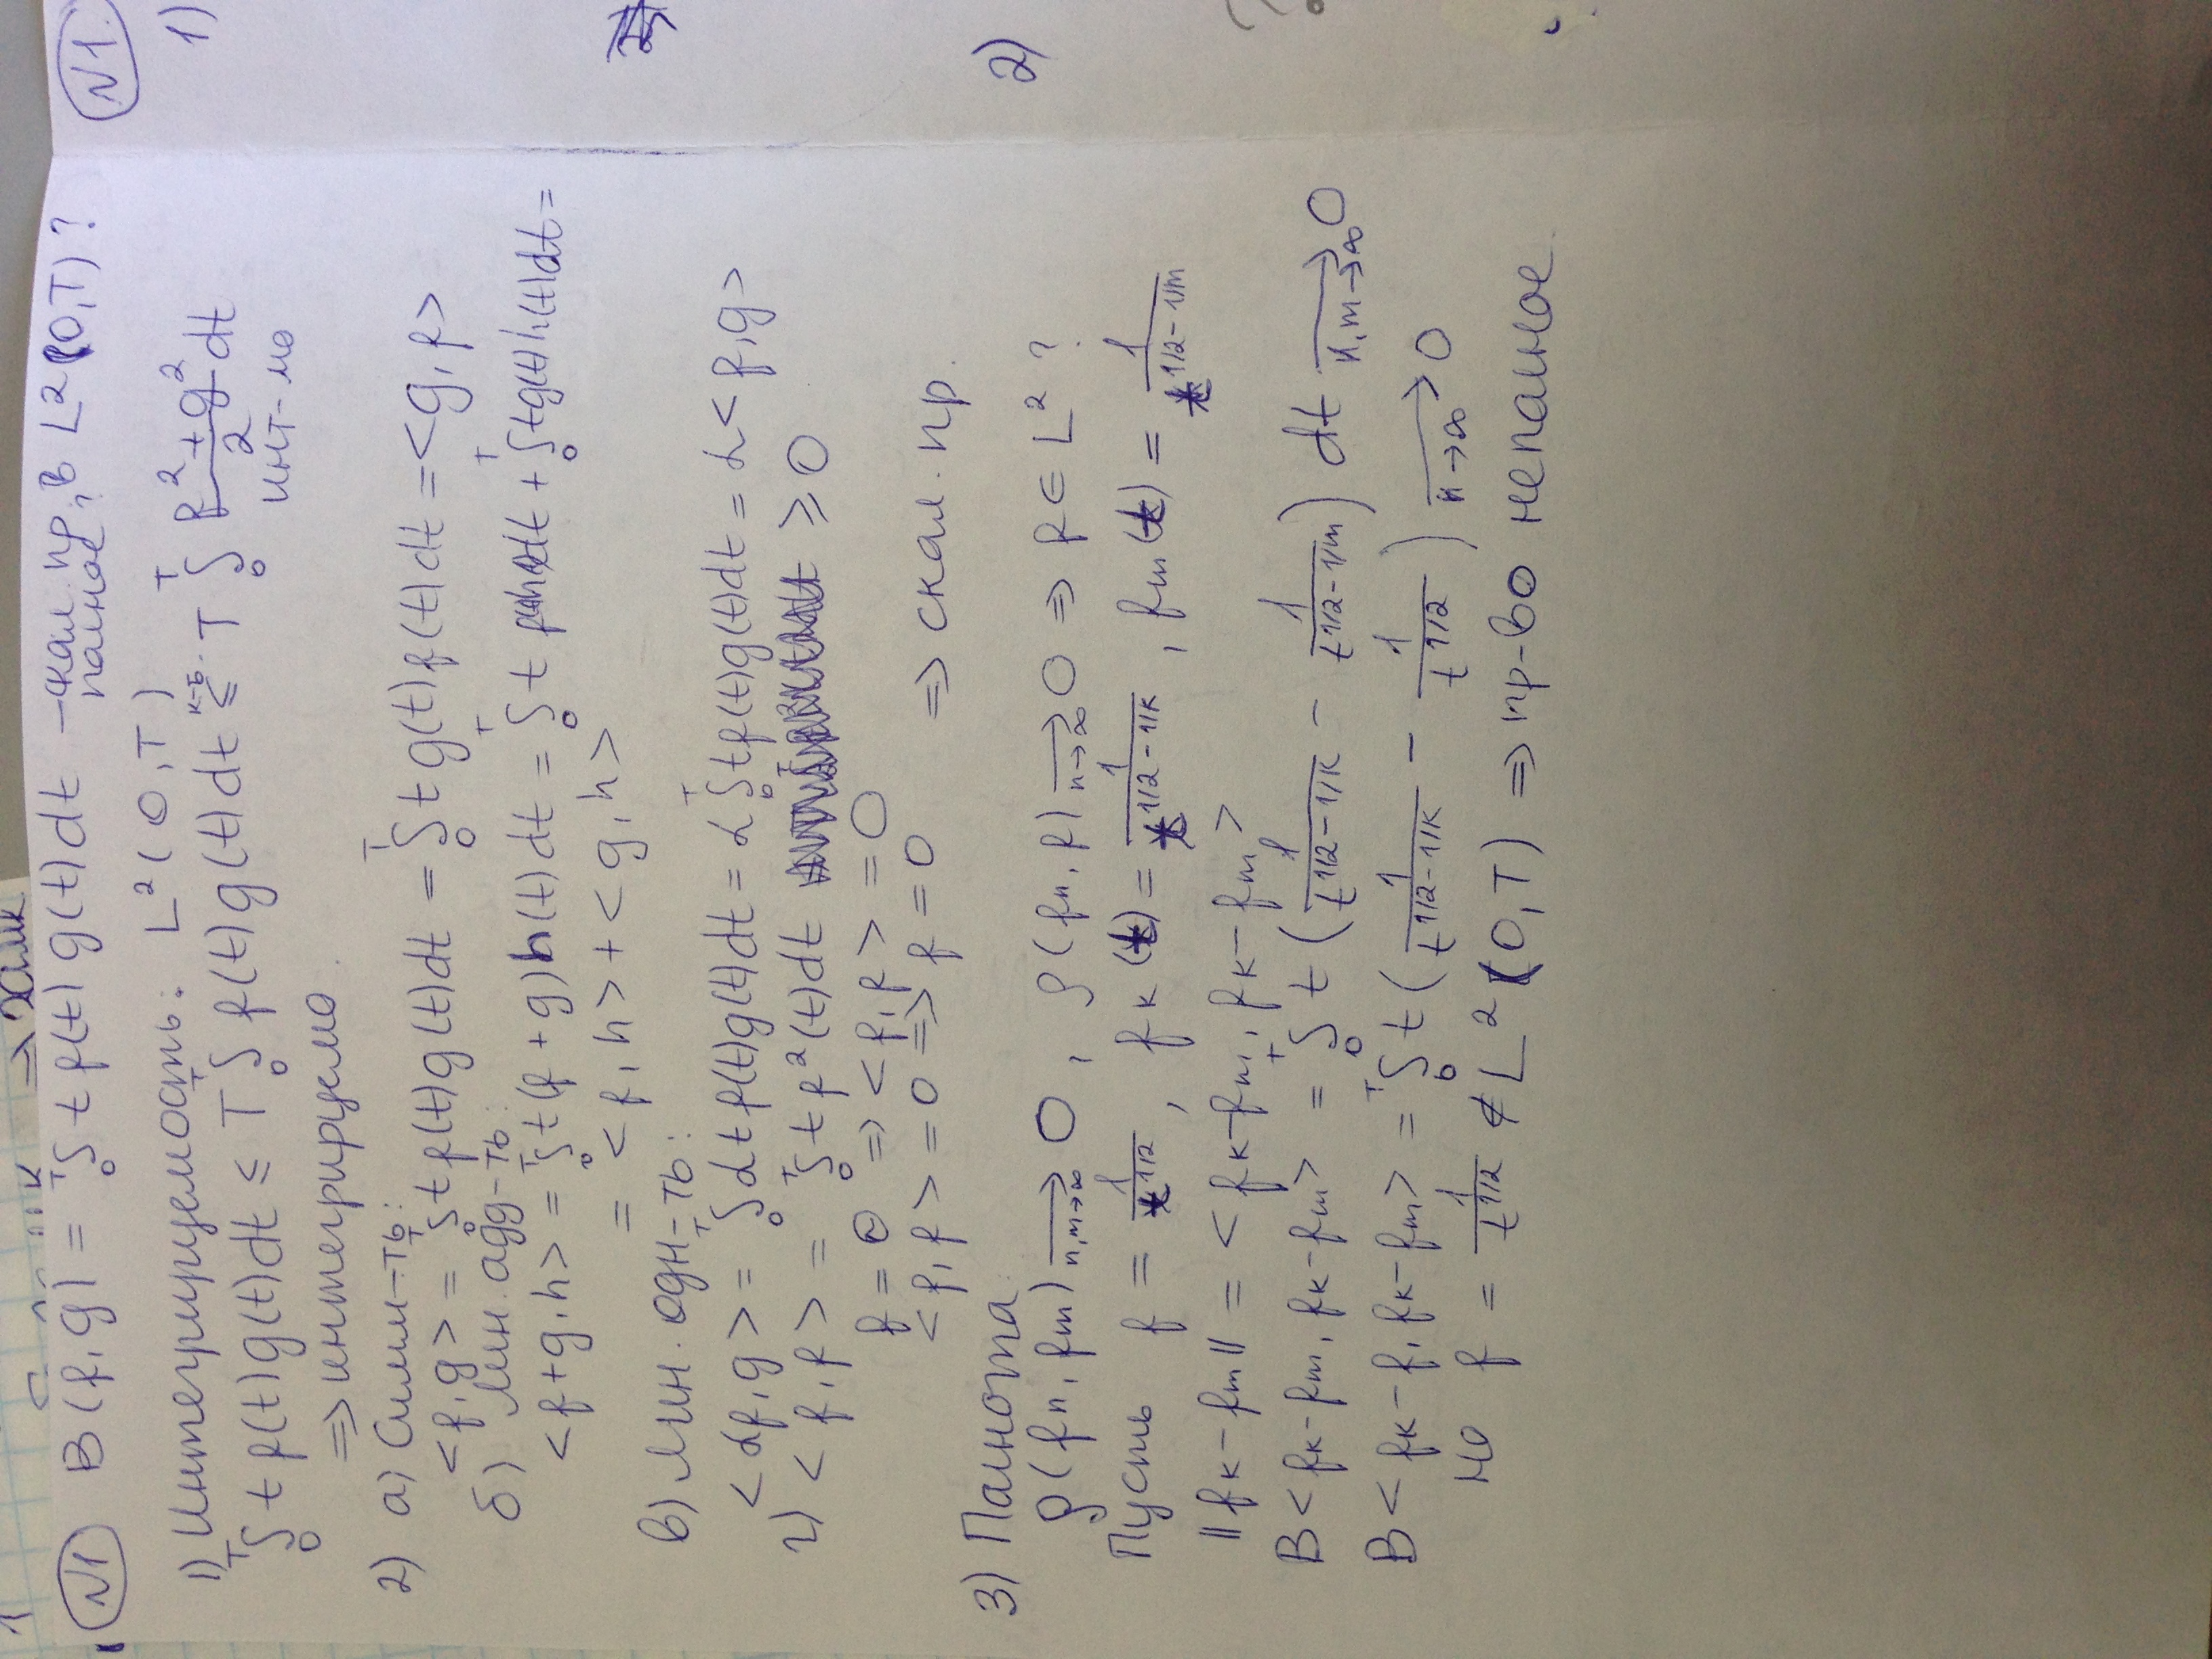 ⇒ замк
N1 B(f,g) = ∫₀ᵀ t f(t) g(t) dt – скал. пр, в L²(0,T)?
полное
1) Интегрируемость: L²(0,T)
∫₀ᵀ t f(t) g(t) dt ≤ T ∫₀ᵀ f(t) g(t) dt ≤ᴷ⁻ᴮ· T ∫₀ᵀ (f²+g²)/2 dt
инт-мо
⇒ интегрируемо
2) а) Симм-ть:
<f,g> = ∫₀ᵀ t f(t) g(t) dt = ∫₀ᵀ t g(t) f(t) dt = <g,f>
б) лин. адд-ть:
<f+g,h> = ∫₀ᵀ t (f+g) h(t) dt = ∫₀ᵀ t f h dt + ∫₀ᵀ t g(t) h(t) dt =
= <f,h> + <g,h>
в) лин. одн-ть:
<αf,g> = ∫₀ᵀ α t f(t) g(t) dt = α ∫₀ᵀ t f(t) g(t) dt = α <f,g>
г) <f,f> = ∫₀ᵀ t f²(t) dt ≥ 0
f = 0 ⇒ <f,f> = 0
<f,f> = 0 ⇒ f = 0 ⇒ скал. пр.
3) Полнота
ρ(fn,fm) →(n,m→∞) 0, ρ(fn,f) →(n→∞) 0 ⇒ f ∈ L²?
Пусть f = 1/t^(1/2), fк(t) = 1/t^(1/2-1/к), fm(t) = 1/t^(1/2-1/m)
||fк-fm|| = <fк-fm, fк-fm>
B<fк-fm, fк-fm> = ∫₀ᵀ t (1/t^(1/2-1/к) - 1/t^(1/2-1/m)) dt →(к,m→∞) 0
B<fк-f, fк-fm> = ∫₀ᵀ t (1/t^(1/2-1/к) - 1/t^(1/2)) →(к→∞) 0
но f = 1/t^(1/2) ∉ L²(0,T) ⇒ пр-во неполное
N1
1)
2)